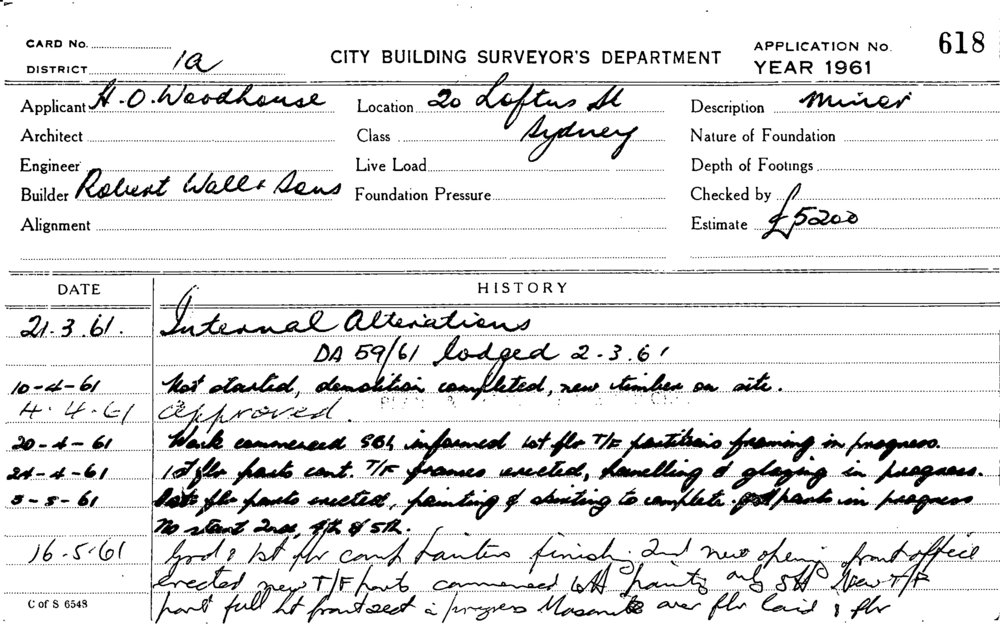 CARD No.
DISTRICT 1a
CITY BUILDING SURVEYOR'S DEPARTMENT
APPLICATION No. 618
YEAR 1961
Applicant H. O. Woodhouse Location 20 Loftus St Description Minor
Architect Class Sydney Nature of Foundation
Engineer Live Load Depth of Footings
Builder Robert Wall & Sons Foundation Pressure Checked by
Alignment Estimate £5200
DATE HISTORY
21.3.61. Internal Alterations
DA 59/61 lodged 2-3.61
10-4-61 Not started, demolition completed, new timber on site.
4.4.61 approved
20-4-61 Work commenced informed 1st flr T/F partitions framing in progress.
24-4-61 1st flr parts cont. T/F frames erected, panelling & glazing in progress.
3-5-61 flr parts erected, painting & to complete. parts in progress
No start 2nd, 4th & 5th.
16-5-61 Grnd & 1st flr comp finish. 2nd new opening front office
erected new T/F parts commenced only 5th New T/F
part full ht front sect in progress Masonite over flr laid & flr
C of S 6548